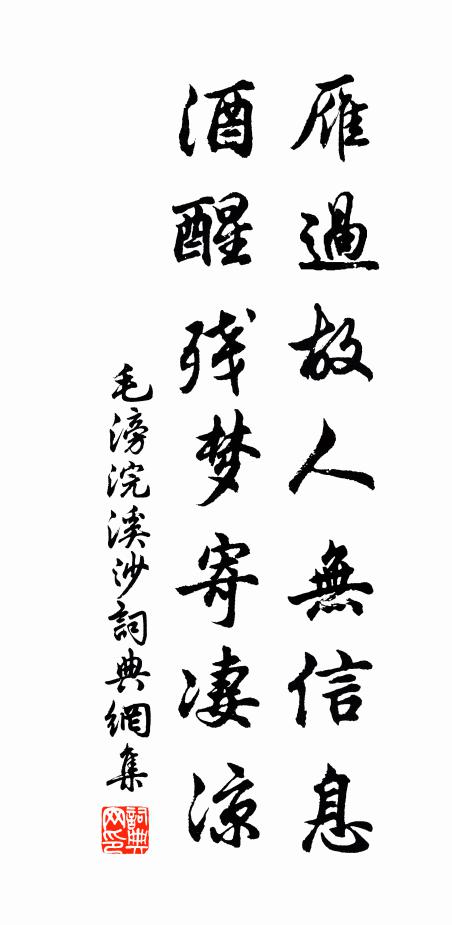 雁過故人無信息
酒醒残梦寄凄涼
毛滂浣溪沙詞典網集
詞典網印